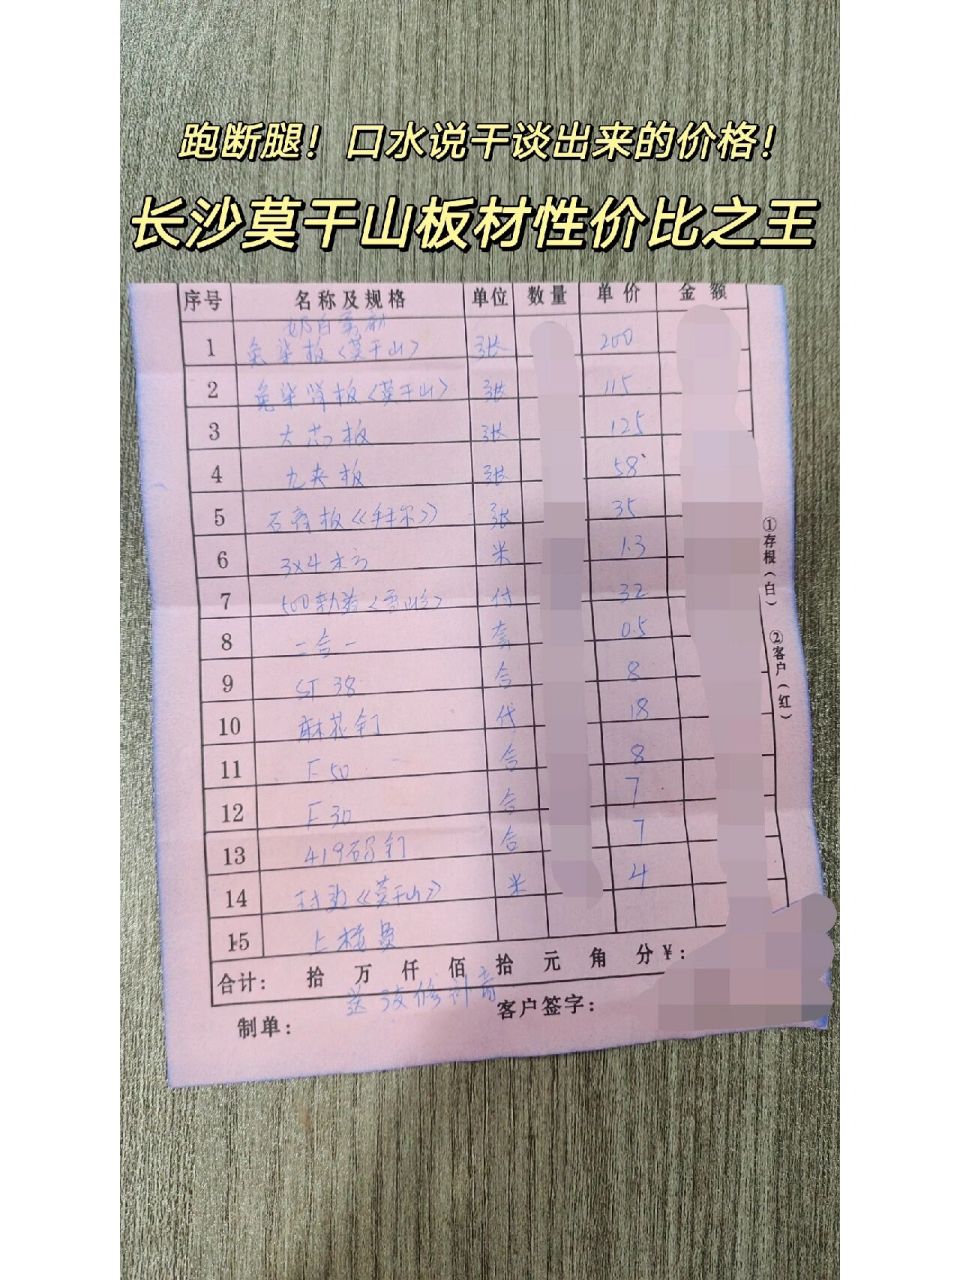 跑断腿！口水说干谈出来的价格！
长沙莫干山板材性价比之王
序号 名称及规格 单位 数量 单价 金额
1 免柒板〈莫干山〉 张 200
2 免柒背板〈莫干山〉 张 115
3 大芯板 张 125
4 九夹板 张 58
5 石膏板《》 张 35
6 3×4木方 米 1.3
7 500 付 32
8 二合一 套 0.5
9 ST 38 合 8
10 麻花钉 代 18
11 F50 合 8
12 F30 合 7
13 419码钉 合 7
14 封边《莫干山》 米 4
15 上楼费
合计： 拾 万 仟 佰 拾 元 角 分 ¥：
制单： 客户签字：
①存根（白） ②客户（红）